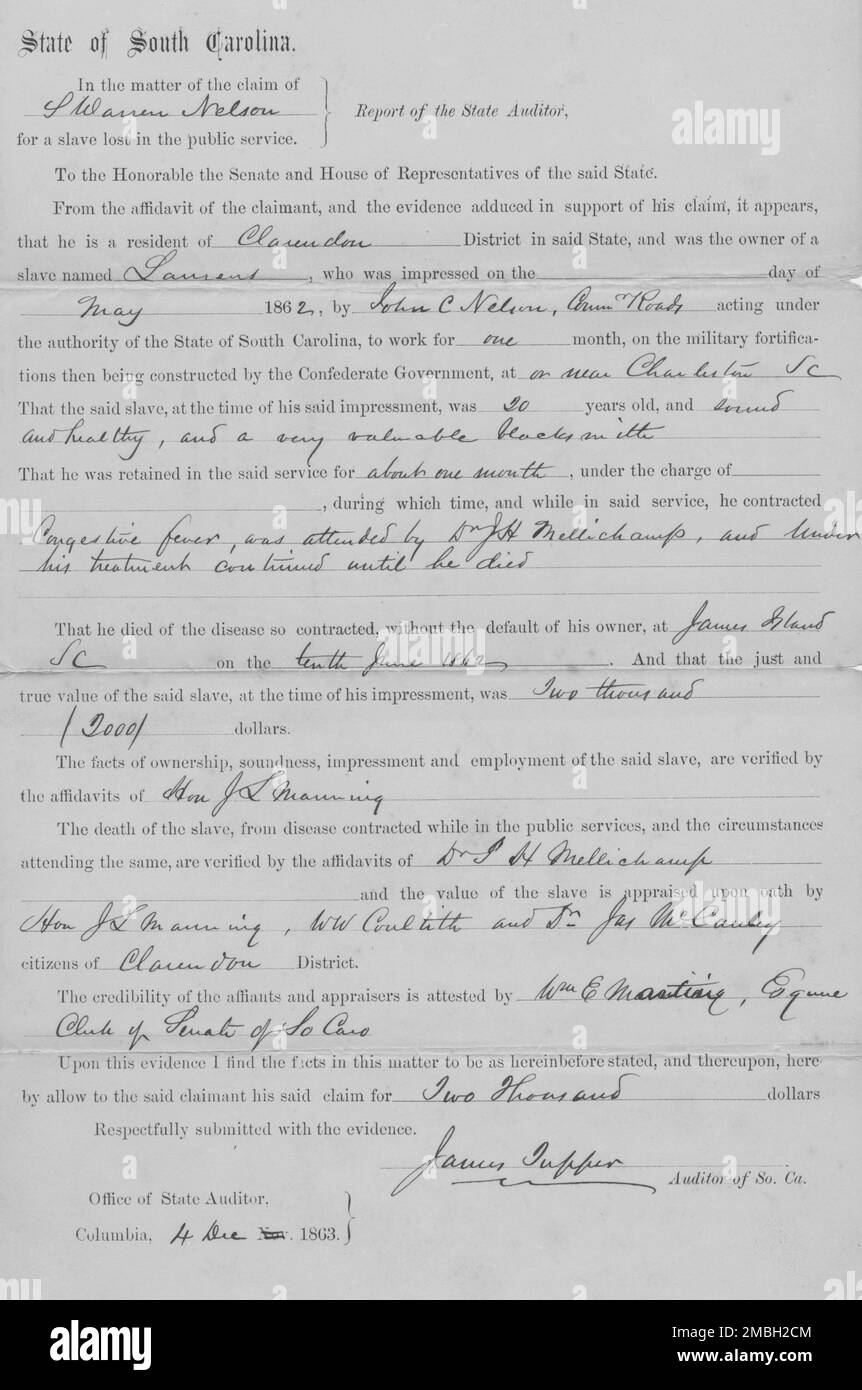 State of South Carolina.
In the matter of the claim of
S Warren Nelson
for a slave lost in the public service.
Report of the State Auditor,
To the Honorable the Senate and House of Representatives of the said State.
From the affidavit of the claimant, and the evidence adduced in support of his claim, it appears,
that he is a resident of Clarendon District in said State, and was the owner of a
slave named Laurens, who was impressed on the day of
May 1862, by John C Nelson, Comr Roads acting under
the authority of the State of South Carolina, to work for one month, on the military fortifica-
tions then being constructed by the Confederate Government, at or near Charleston SC
That the said slave, at the time of his said impressment, was 20 years old, and sound
and healthy, and a very valuable blacksmith
That he was retained in the said service for about one month, under the charge of
, during which time, and while in said service, he contracted
Congestive fever, was attended by Dr J H Mellichamp, and under
his treatment continued until he died
That he died of the disease so contracted, without the default of his owner, at James Island
SC on the tenth June 1862. And that the just and
true value of the said slave, at the time of his impressment, was Two thousand
(2000) dollars.
The facts of ownership, soundness, impressment and employment of the said slave, are verified by
the affidavits of Hon J L Manning
The death of the slave, from disease contracted while in the public services, and the circumstances
attending the same, are verified by the affidavits of Dr J H Mellichamp
and the value of the slave is appraised upon oath by
Hon J L Manning, WW and Dr Jas McCauley
citizens of Clarendon District.
The credibility of the affiants and appraisers is attested by Wm E , Esquire
Clerk of Senate of So Caro
Upon this evidence I find the facts in this matter to be as hereinbefore stated, and thereupon, here-
by allow to the said claimant his said claim for Two Thousand dollars
Respectfully submitted with the evidence.
James Tupper
Auditor of So. Ca.
Office of State Auditor.
Columbia, 4 Dec Nov. 1863.
alamy
Image ID: 2MBH2CM
www.alamy.com